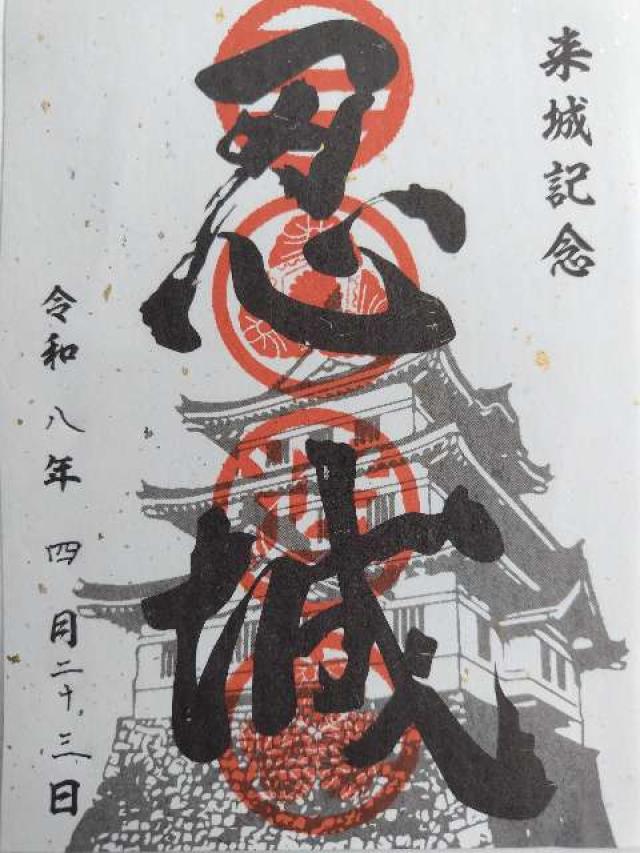 来城記念
忍城
令和八年 四月二十三日